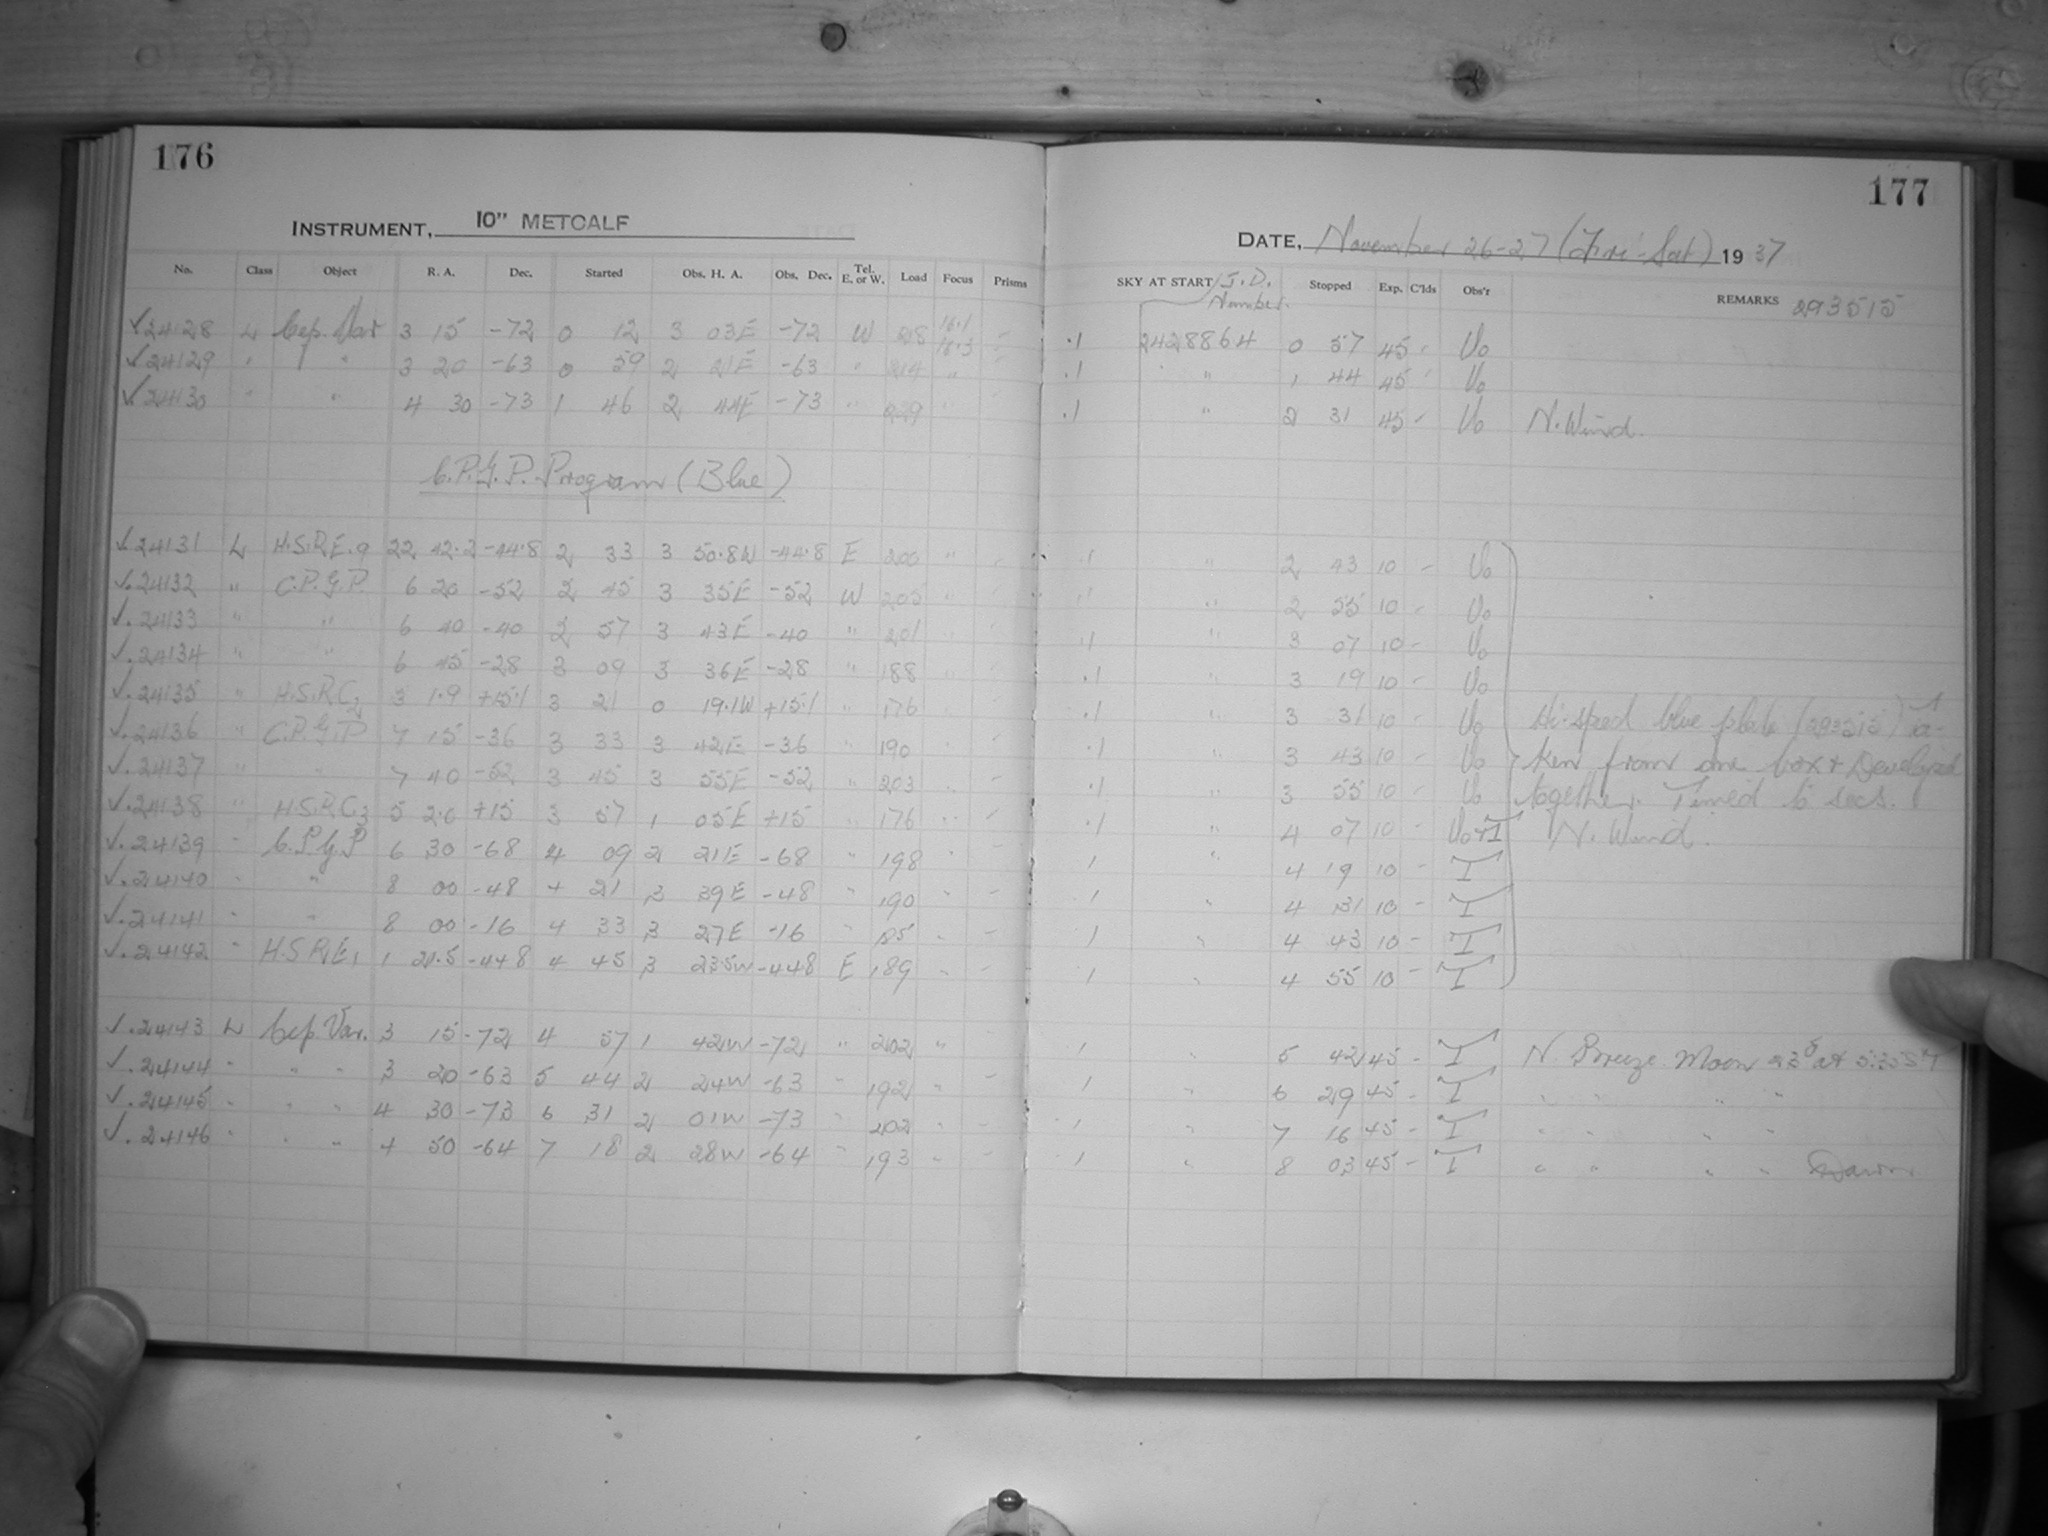 176
INSTRUMENT, 10" METCALF
No. Class Object R. A. Dec. Started Obs. H. A. Obs. Dec. Tel. E. or W. Load Focus Prisms
24128 L Cep. Var 3 15 -72 0 12 3 03E -72 W 218 16.1 16.3
24129 " " 3 20 -63 0 59 2 21E -63 " 214 "
24130 " " 4 30 -73 1 46 2 44E -73 " 229 "
C.P.G.P. Program (Blue)
24131 L H.S.R.E.9 22 42.2 -44.8 2 33 3 50.8W -44.8 E 200 "
24132 " C.P.G.P. 6 20 -52 2 45 3 35E -52 W 205 "
24133 " " 6 40 -40 2 57 3 43E -40 " 201 "
24134 " " 6 45 -28 3 09 3 36E -28 " 188 "
24135 " H.S.R.C2 3 1.9 +15.1 3 21 0 19.1W +15.1 " 176 "
24136 " C.P.G.P 7 15 -36 3 33 3 42E -36 " 190 "
24137 " " 7 40 -52 3 45 3 55E -52 " 203 "
24138 " H.S.R.C3 5 2.0 +15 3 57 1 05E +15 " 176 "
24139 " C.P.G.P 6 30 -68 4 09 2 21E -68 " 198 "
24140 " " 8 00 -48 4 21 3 39E -48 " 190 "
24141 " " 8 00 -16 4 33 3 27E -16 " "
24142 " H.S.R.E1 1 21.5 -44.8 4 45 3 23.5W -44.8 E 189 "
24143 L Cep. Var. 3 15 -72 4 57 1 42W -72 " 202 "
24144 " " " 3 20 -63 5 44 2 24W -63 " 192 "
24145 " " " 4 30 -73 6 31 2 01W -73 " 202 "
24146 " " " 4 50 -64 7 18 2 28W -64 " 193 "
177
DATE, November 26-27 (Fri-Sat) 1937
SKY AT START J.D. Number. Stopped Exp. C'lds Obs'r REMARKS 293515
.1 2428864 0 57 45 - Vo
.1 " 1 44 45 - Vo
.1 " 2 31 45 - Vo N. Wind.
.1 " 2 43 10 - Vo
.1 " 2 55 10 - Vo
.1 " 3 07 10 - Vo
.1 " 3 19 10 - Vo
.1 " 3 31 10 - Vo Hi-speed blue plate (293515) ta-
.1 " 3 43 10 - Vo ken from one box & Developed
.1 " 3 55 10 - Vo together. Timed 6 secs.
.1 " 4 07 10 - Vo+T N. Wind.
1 " 4 19 10 - T
1 " 4 31 10 - T
1 " 4 43 10 - T
1 " 4 55 10 - T
1 " 5 42 45 - T N. Breeze. Moon 23d at 5:35
1 " 6 29 45 - T " " " "
1 " 7 16 45 - T " " " "
1 " 8 03 45 - T " " " " Dawn.